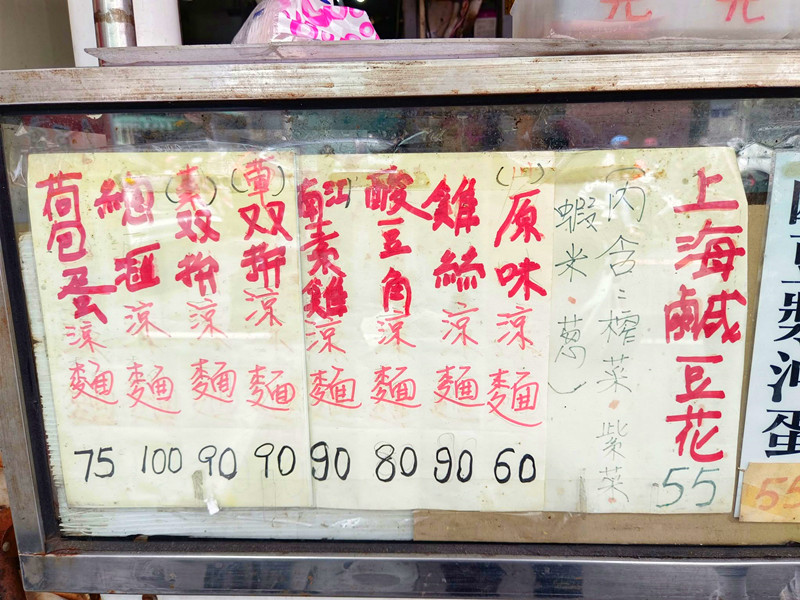 元 元
蛋
55
上海鹹豆花
55
(內含:榨菜·紫菜
蝦米·蔥)
原味涼麵
60
雞絲涼麵
90
酸豆角涼麵
80
江南素雞涼麵
90
(葷)双拚涼麵
90
(素)双拚涼麵
90
總滙涼麵
100
荷包蛋涼麵
75